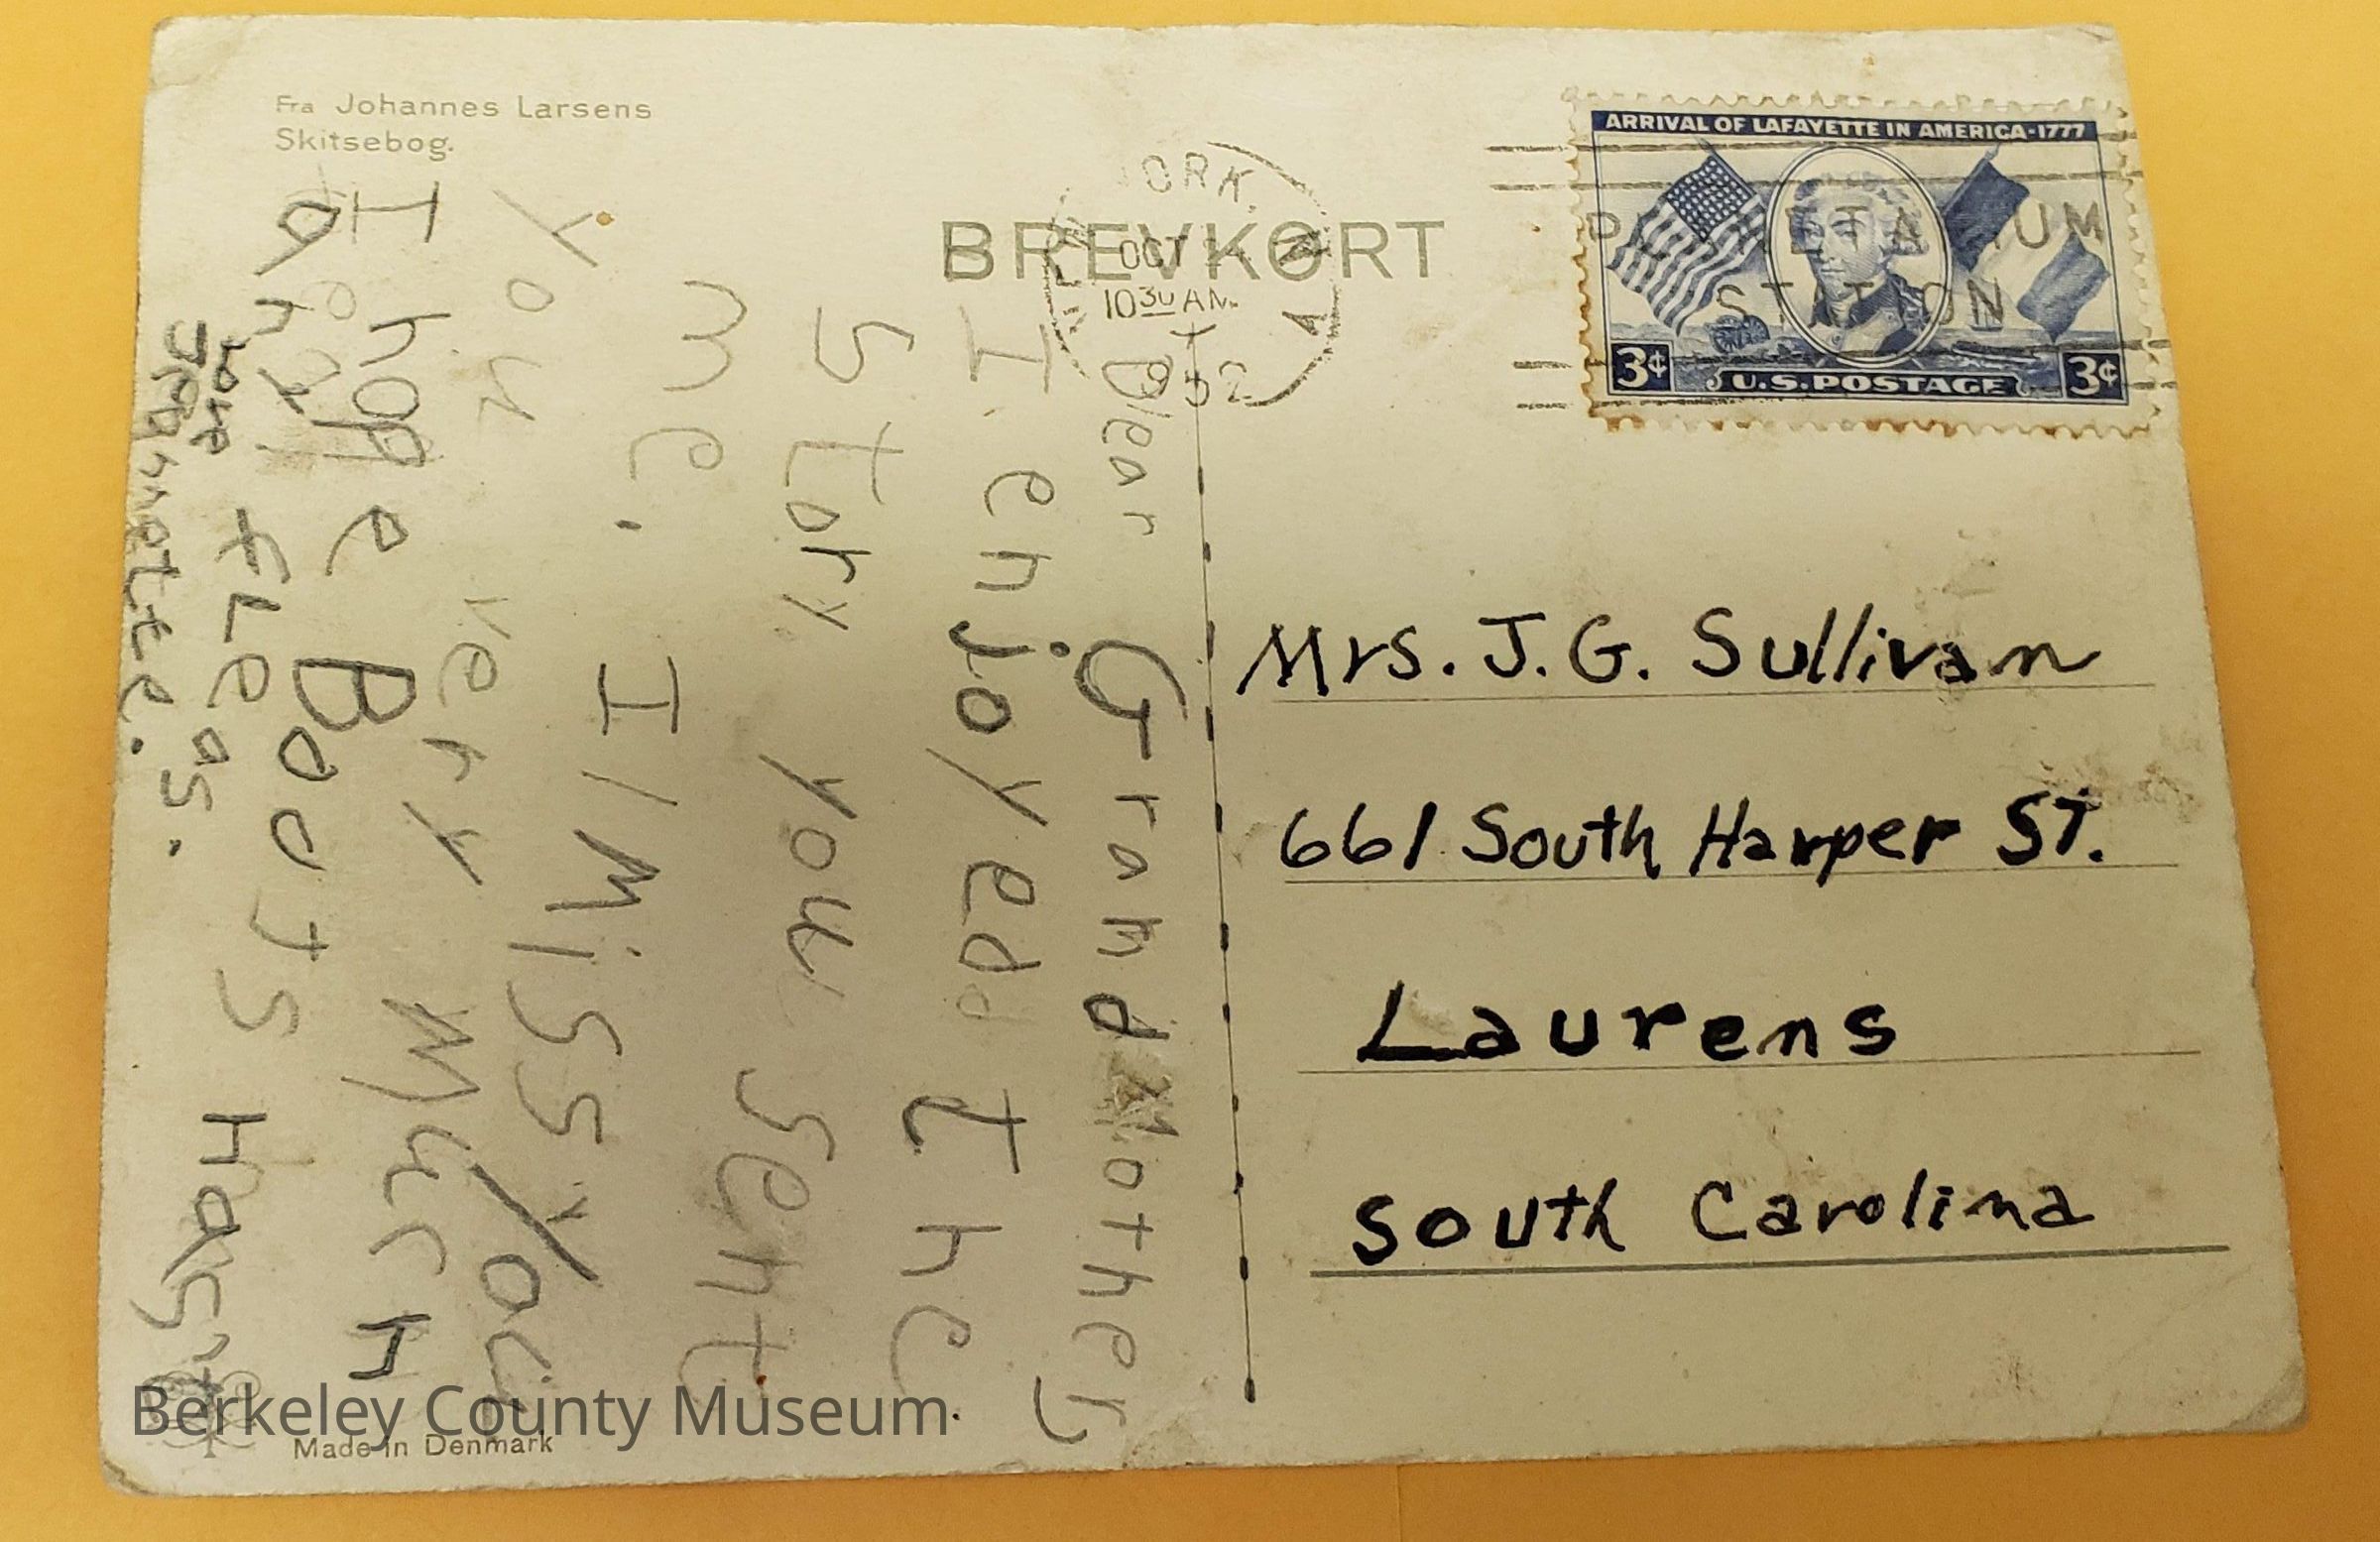 Fra Johannes Larsens
Skitsebog.
BREVKORT
YORK,
OCT
10 30 AM
52
ARRIVAL OF LAFAYETTE IN AMERICA·1777
STATION
3¢ U.S. POSTAGE 3¢
Dear Grand Mother
I enjoyed the
Story you sent
me. I Miss You
You very Much
I hope Boots Hasn't
any fleas.
love
Johannette.
Mrs. J.G. Sullivan
661 South Harper ST.
Laurens
South Carolina
Made in Denmark
Berkeley County Museum